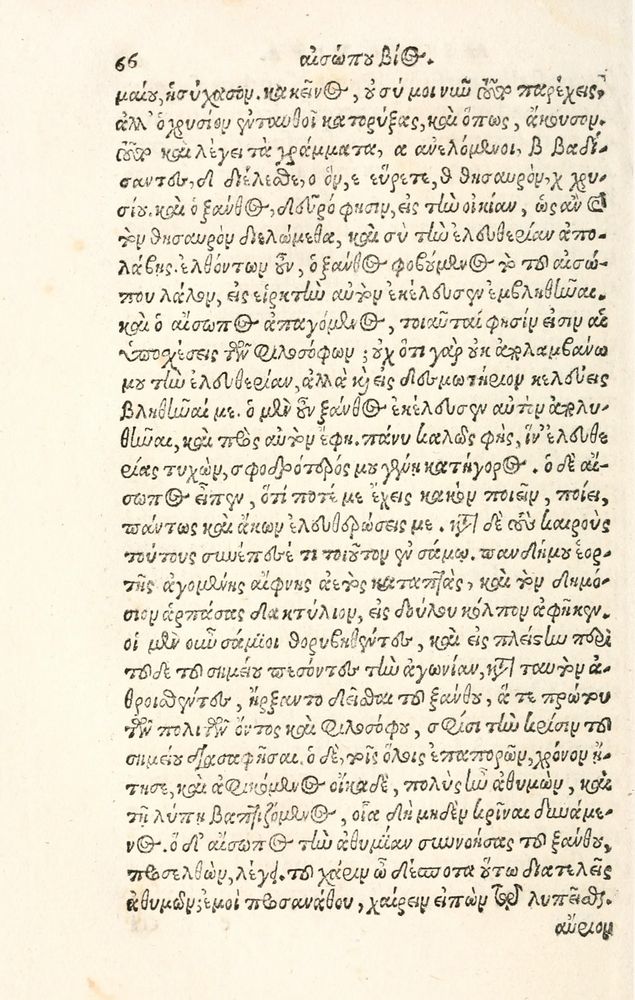 66 αἰσώπου βίος.
μαίου, ἡσύχασον. κἀκεῖνος, οὐ σύ μοι νῦν τοῦτο παρέχεις,
ἀλλ' ὁ χρυσίον ἐνταυθοῖ κατορύξας, καὶ ὅπως, ἄκουσον.
τοῦτο καὶ λέγει τὰ γράμματα, α ἀνελόμενοι, β βαδί-
σαντες, δ διέλεσθε, ο ὃν, ε εὕρετε, θ θησαυρὸν, χ χρυ-
σίου. καὶ ὁ ξάνθος, δεῦρό φησιν, εἰς τὴν οἰκίαν, ὡς ἂν καὶ
τὸν θησαυρὸν διελώμεθα, καὶ σὺ τὴν ἐλευθερίαν ἀπο-
λάβῃς. ἐλθόντων οὖν, ὁ ξάνθος φοβούμενος τὸ τοῦ αἰσώ-
που λάλον, εἰς εἱρκτὴν αὐτὸν ἐκέλευσεν ἐμβληθῆναι.
καὶ ὁ αἴσωπος ἀπαγόμενος, τοιαῦταί φησίν εἰσιν αἱ
ὑποσχέσεις τῶν φιλοσόφων; οὐχ ὅτι γὰρ οὐκ ἀπολαμβάνω
μου τὴν ἐλευθερίαν, ἀλλὰ καὶ εἰς δεσμωτήριον κελεύεις
βληθῆναί με. ὁ μὲν οὖν ξάνθος ἐκέλευσεν αὐτὸν ἀπολυ-
θῆναι, καὶ πρὸς αὐτὸν ἔφη. πάνυ καλῶς φῂς, ἵν' ἐλευθε-
ρίας τυχὼν, σφοδρότερός μου γένῃ κατήγορος. ὁ δὲ αἴ-
σωπος εἶπεν, ὅτι ποτέ με ἔχεις κακὸν ποιεῖν, ποίει,
πάντως καὶ ἄκων ἐλευθερώσεις με. κατὰ δὲ τοὺς καιροὺς
τούτους συνέπεσέ τι τοιοῦτον ἐν σάμῳ. πανδήμου ἑορ-
τῆς ἀγομένης αἴφνης ἀετὸς καταπτὰς, καὶ τὸν δημό-
σιον ἁρπάσας δακτύλιον, εἰς δούλου κόλπον ἀφῆκεν.
οἱ μὲν οὖν σάμιοι θορυβηθέντες, καὶ εἰς πλείστην περὶ
τοῦδε τοῦ σημείου πεσόντες τὴν ἀγωνίαν, κατὰ ταυτὸν ἀ-
θροισθέντες, ἤρξαντο δεῖσθαι τοῦ ξάνθου, ἅτε πρώτου
τῶν πολιτῶν ὄντος καὶ φιλοσόφου, σφίσι τὴν κρίσιν τοῦ
σημείου διασαφῆσαι. ὁ δὲ, τοῖς ὅλοις ἐπαπορῶν, χρόνον ᾔ-
τησε, καὶ ἀφικόμενος οἴκαδε, πολὺς ἦν ἀθυμῶν, καὶ
τῇ λύπῃ βαπτιζόμενος, οἷα δὴ μηδὲν κρῖναι δυνάμε-
νος. ὁ δ' αἴσωπος τὴν ἀθυμίαν συννοήσας τοῦ ξάνθου,
προσελθὼν, λέγει. τοῦ χάριν ὦ δέσποτα οὕτω διατελεῖς
ἀθυμῶν; ἐμοὶ προσανάθου, χαίρειν εἰπὼν τῷ λυπεῖσθαι.
αὔριον